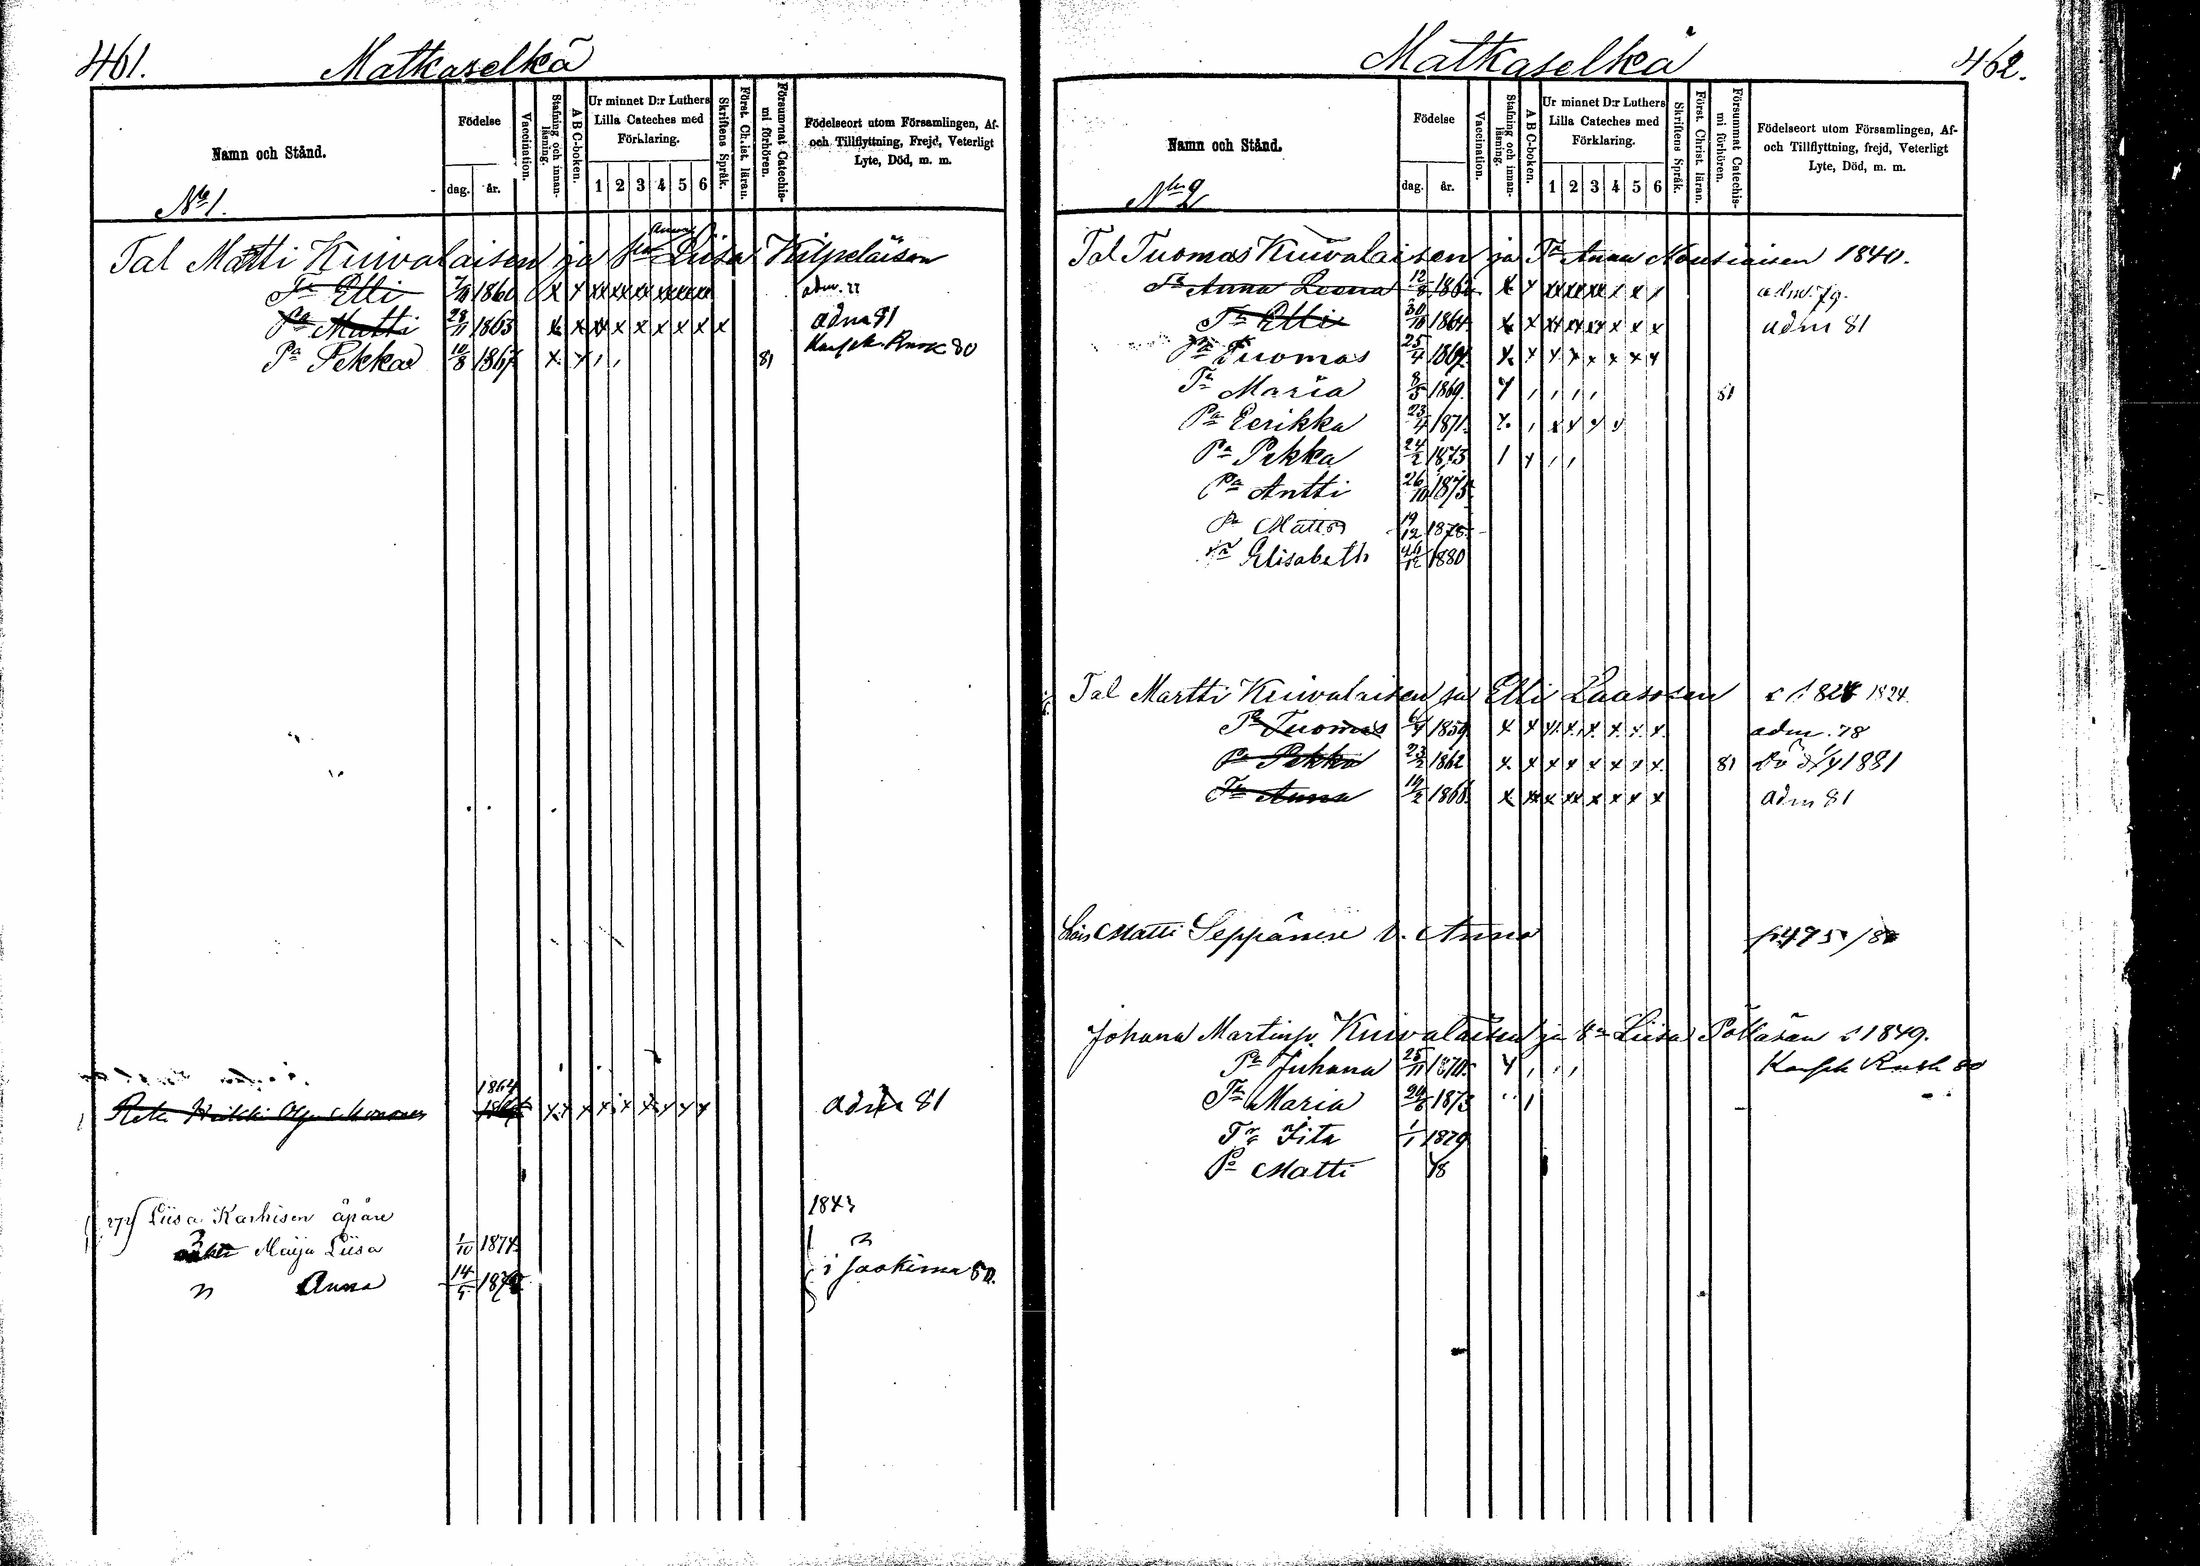 461.
Matkaselkä
Namn och Stånd.
No 1.
Födelse
dag.
år.
Vaccination.
Stafning och innan-
läsning.
A B C-boken.
Ur minnet D:r Luthers
Lilla Cateches med
Förklaring.
1 2 3 4 5 6
Skriftens Språk.
Först. Christ. läran.
Försummat Catechis-
mi förhören.
Födelseort utom Församlingen, Af-
och Tillflyttning, Frejd, Veterligt
Lyte, Död, m. m.
Tal Matti Kuivalaisen ja Liisa Kilpeläisen
Tr Elli 1860 x x xx xx xx xx
Pa Matti 28/11 1863 x x xx x x x x x x adm 81
Pa Pekka 10/8 1867 x x 81 80
Heikki 1864 x x x x x x x x adm 81
Liisa Karhisen äpäre 1843
Maija Liisa 1/10 1874
Anna 14/5
i Jaakima 80.
462.
Matkaselkä
Namn och Stånd.
No 2
Födelse
dag.
år.
Vaccination.
Stafning och innan-
läsning.
A B C-boken.
Ur minnet D:r Luthers
Lilla Cateches med
Förklaring.
1 2 3 4 5 6
Skriftens Språk.
Först. Christ. läran.
Försummat Catechis-
mi förhören.
Födelseort utom Församlingen, Af-
och Tillflyttning, frejd, Veterligt
Lyte, Död, m. m.
Tal Tuomas Kuivalaisen ja Anna Nousiaisen 1840.
Tr Anna Leena 12/8 x x xx xx xx x x adm. 79.
Tr Elli 30/10 1864 x x xx xx xx x x x adm 81
Pa Tuomas 25/4 1867 x x x x x x x x
Tr Maria 8/5 1869. x 81
Pa Eerikka 23/4 1871. x x x x
Pa Pekka 24/2 1873
Pa Antti 26/10 1875
Pa Matti 19/12 1878
Tr Elisabeth 26/12 1880
Tal Martti Kuivalaisen ja Elli Laassosen 1824.
Pa Tuomas 6/4 1859 x x x x x x x x adm. 78
Pa Pekka 23/2 1862 x x x x x x x x 81 1881
Tr Anna 14/2 1866 x xx x xx x x x x adm 81
Lois Matti Seppänen v. Anna
Johana Kuivalaisen ja Liisa Pöllasän 1849.
Pa Juhana 25/11 1870.
Tr Maria 24/6 1873
Tr Iita 1/1 1879
Pa Matti 78